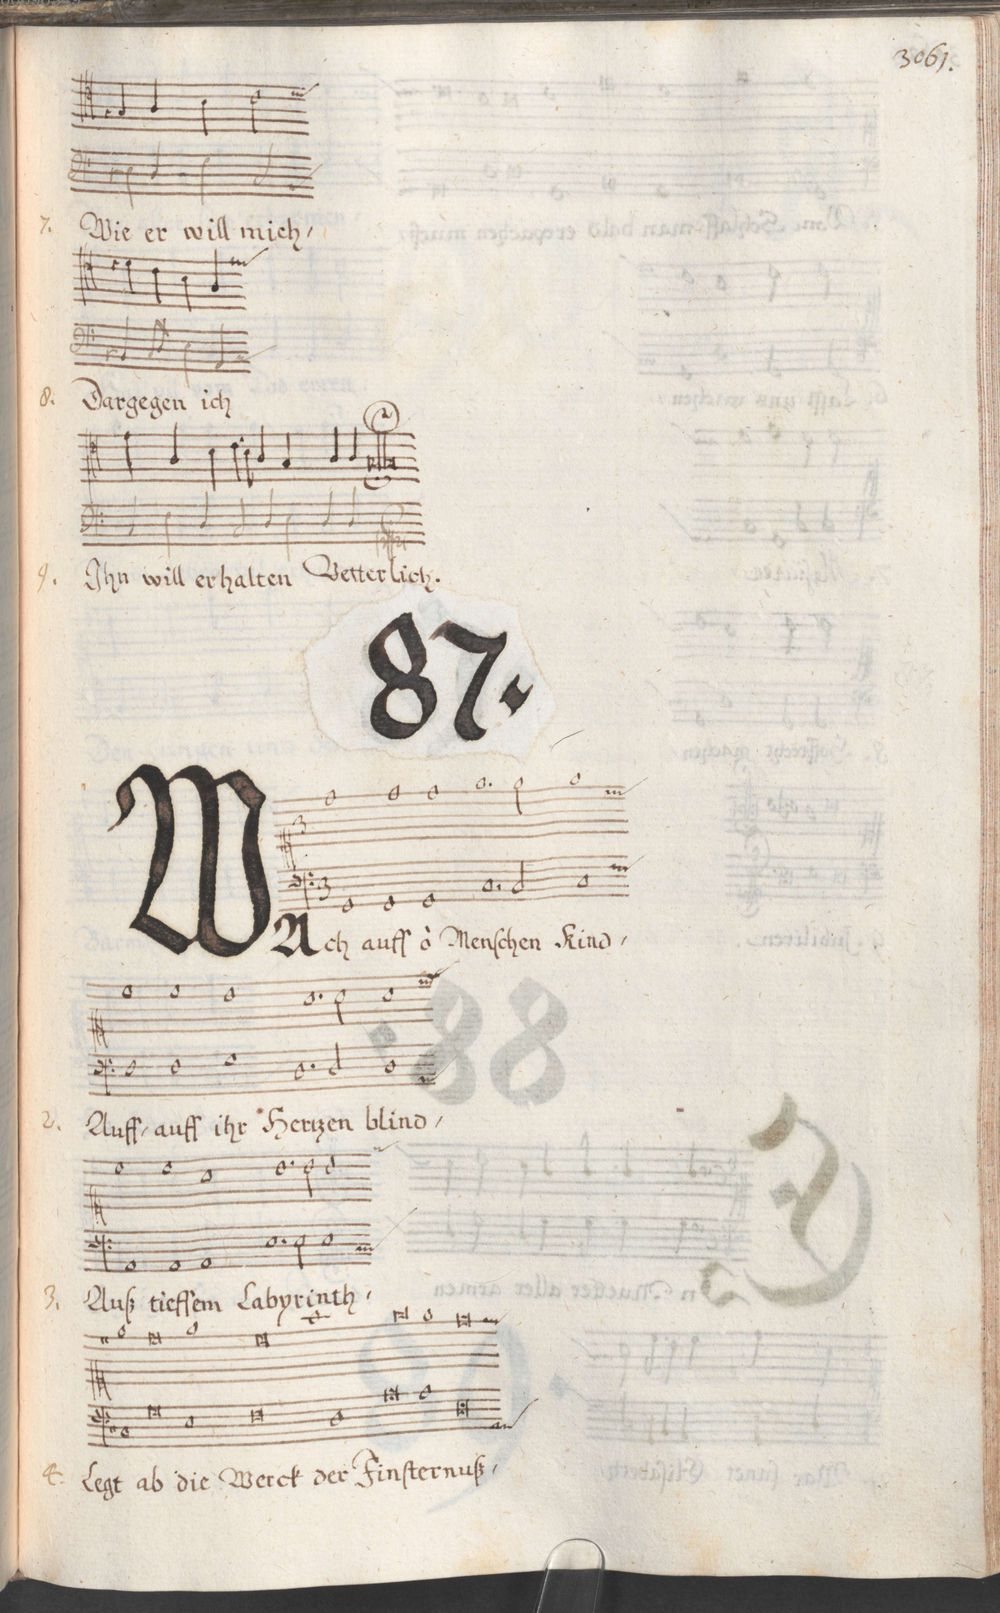 3061.
7. Wie er will mich,
8. Dargegen ich
9. Ihn will erhalten Vetterlich.
87.
WAch auff ò Menschen Kind,
2. Auff, auff ihr Hertzen blind,
3. Auß tieffem Labyrinth,
4. Legt ab die Werck der Finsternuß,